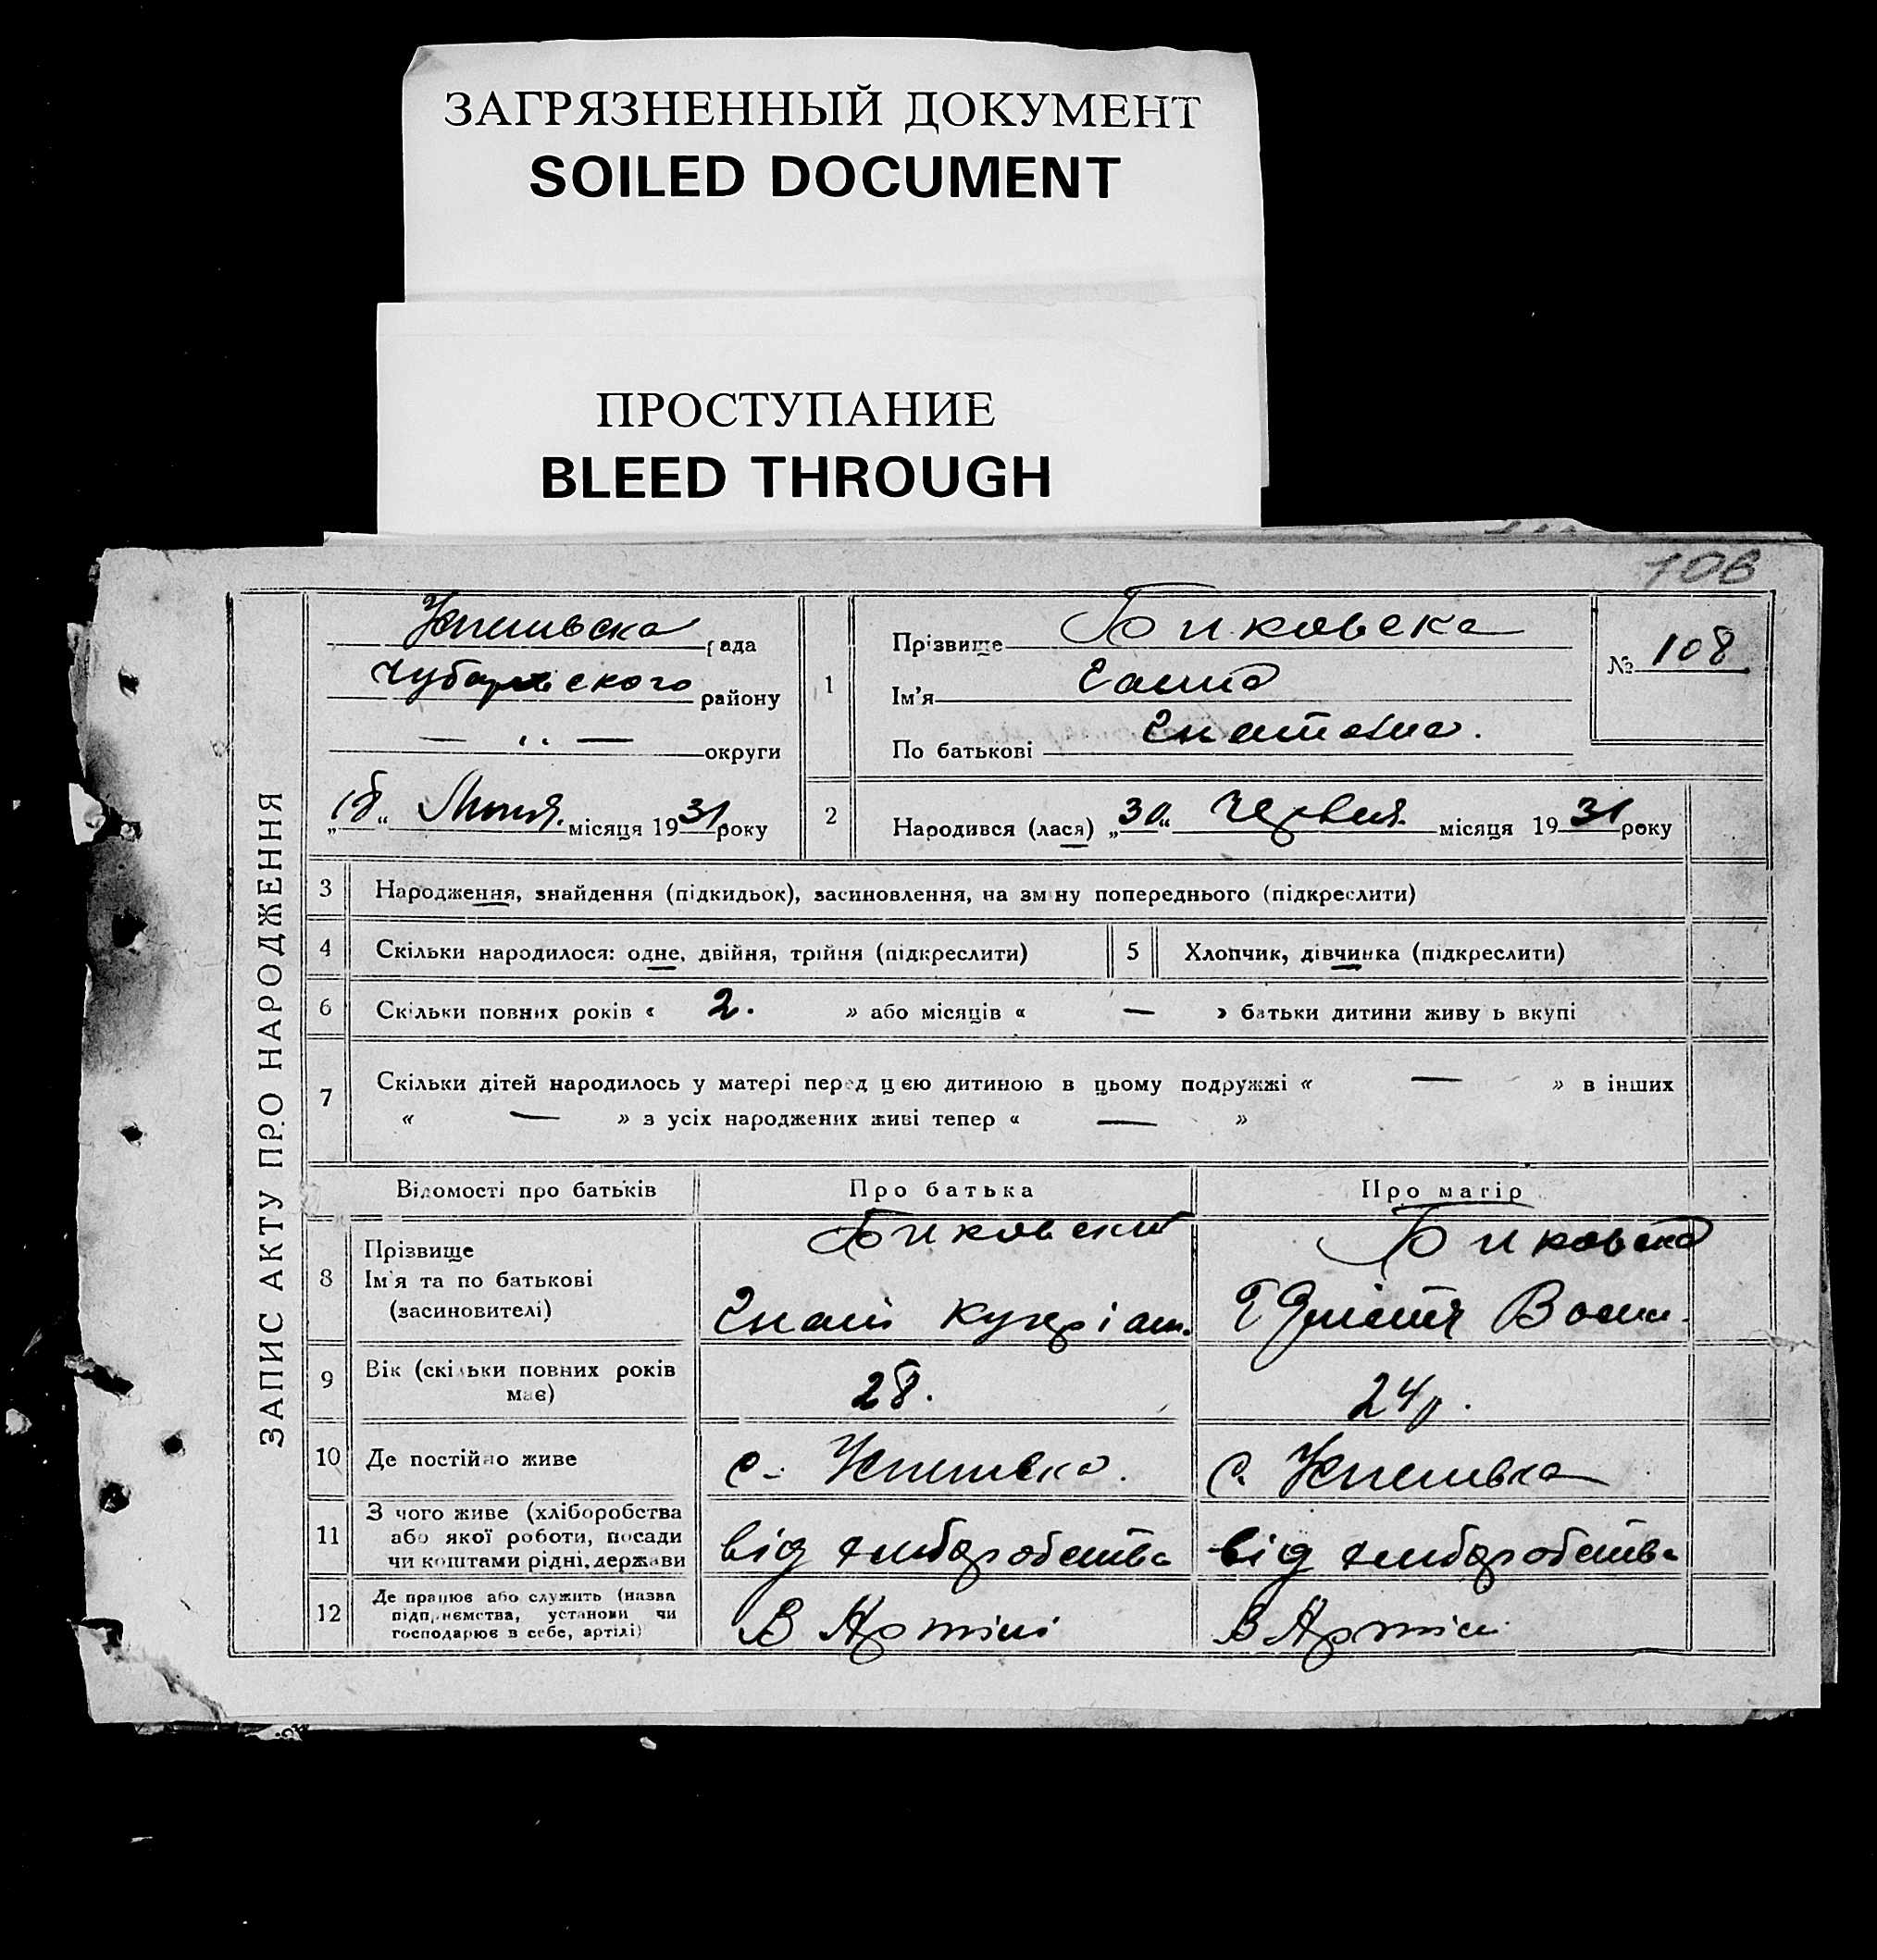 ЗАГРЯЗНЕННЫЙ ДОКУМЕНТ
SOILED DOCUMENT
ПРОСТУПАНИЕ
BLEED THROUGH
108
ЗАПИС АКТУ ПРО НАРОДЖЕННЯ
рада
району
— ,, — округи
„18“ місяця 1931 року
1
Прізвище Биковска
Ім'я
По батькові Гнатовна.
№ 108
2
Народився (лася) „30“ Червня місяця 1931 року
3 Народження, знайдення (підкидьок), засиновлення, на зміну попереднього (підкреслити)
4 Скільки народилося: одне, двійня, трійня (підкреслити)
5 Хлопчик, дівчинка (підкреслити)
6 Скільки повних років « 2. » або місяців « — » батьки дитини живуть вкупі
7 Скільки дітей народилось у матері перед цією дитиною в цьому подружжі « — » в інших
« — » з усіх народжених живі тепер « — »
Відомості про батьків
Про батька
Про матір
8 Прізвище
Ім'я та по батькові
(засиновителі)
Биковский
Гнат
Биковска
9 Вік (скільки повних років
має)
28.
24р.
10 Де постійно живе
с. Успеновка.
с. Успеновка
11 З чого живе (хліборобства
або якої роботи, посади
чи коштами рідні, держави
від хлиборобства
від хлиборобства
12 Де працює або служить (назва
підприємства, установи чи
господарює в себе, артілі)
В Артілі
В Артілі